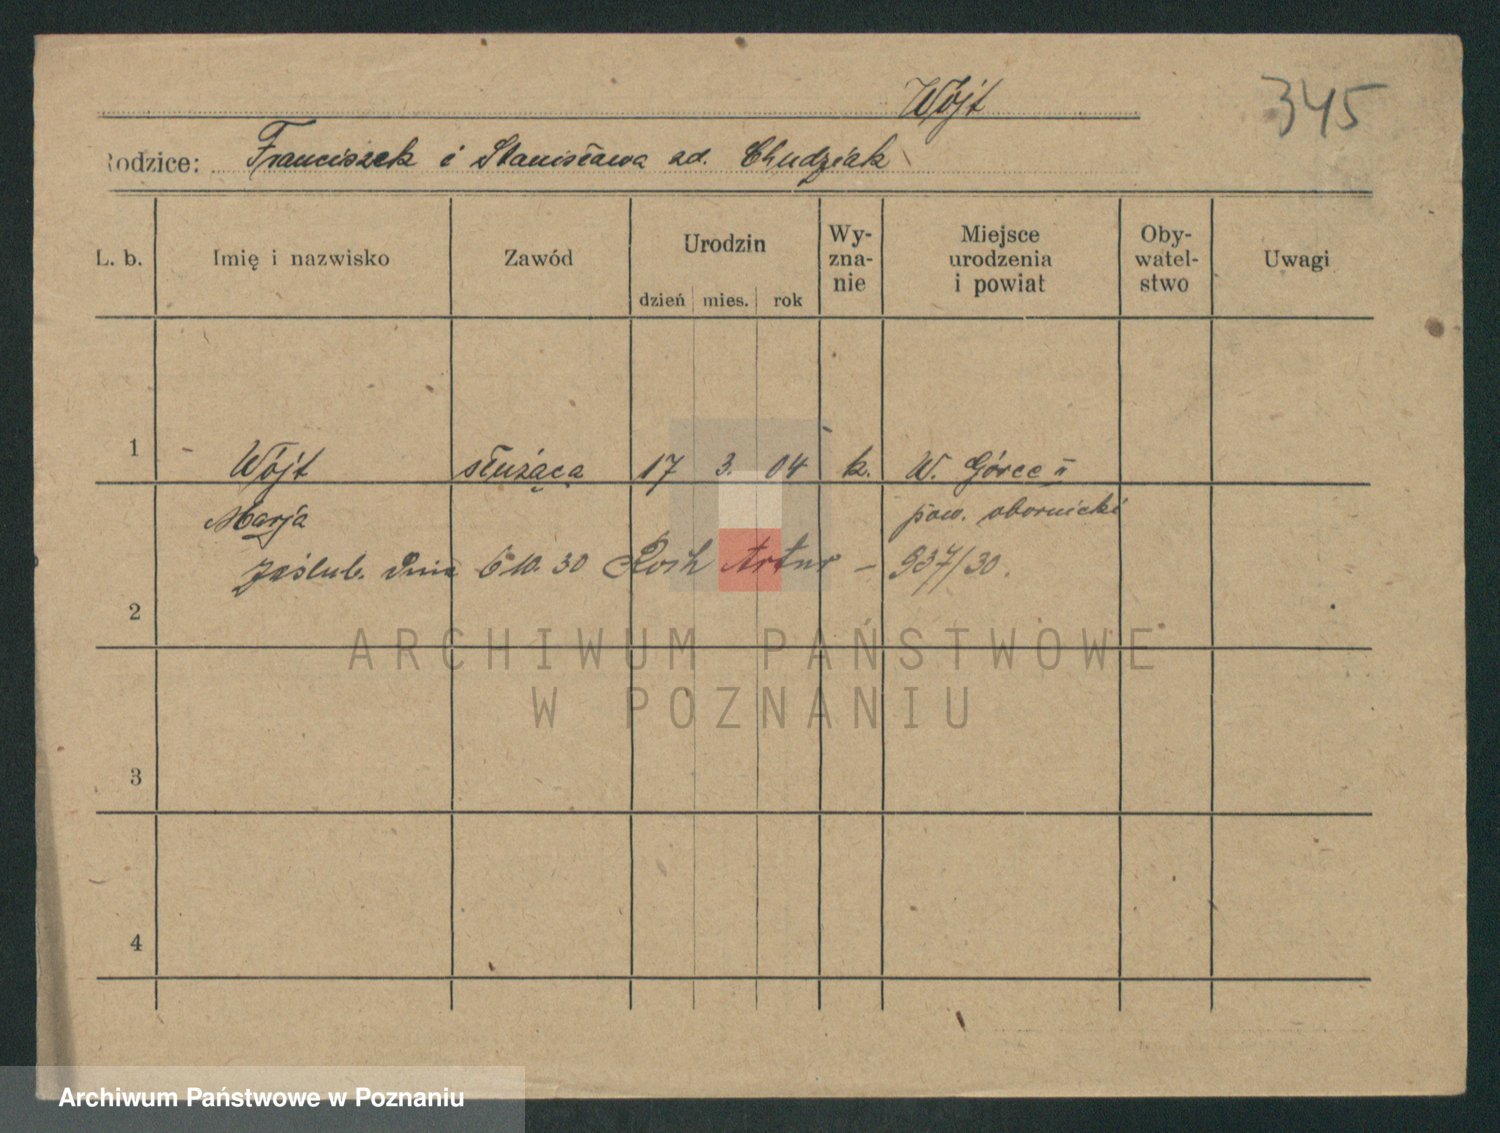 Wójt
345
Rodzice: Franciszek i Stanisława zd. Chudziak
L. b.
Imię i nazwisko
Zawód
Urodzin
dzień mies. rok
Wy-
zna-
nie
Miejsce
urodzenia
i powiat
Oby-
watel-
stwo
Uwagi
1 Wójt służąca 17 3. 04 k. W. Górce II
Marja pow. obornicki
zaślub. dnia 6 10. 30 Artur – 937/30.
2
3
4
ARCHIWUM PAŃSTWOWE
W POZNANIU
Archiwum Państwowe w Poznaniu